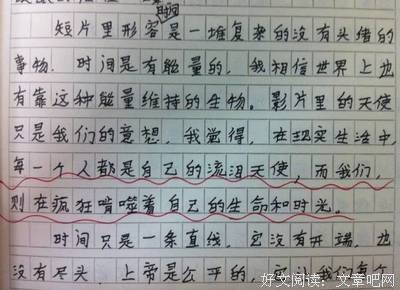 短片里形容是一堆复杂的没有头绪的
事物.时间是有能量的,我相信世界上也
有靠这种能量维持的生物。影片里的天使
只是我们的意想,我觉得,在现实生活中,
每一个人都是自己的流泪天使,而我们,
则在疯狂啃噬着自己的生命和时光。
时间只是一条直线,它没有开端,也
没有尽头,上帝是公开的,
好文阅读:文章吧网